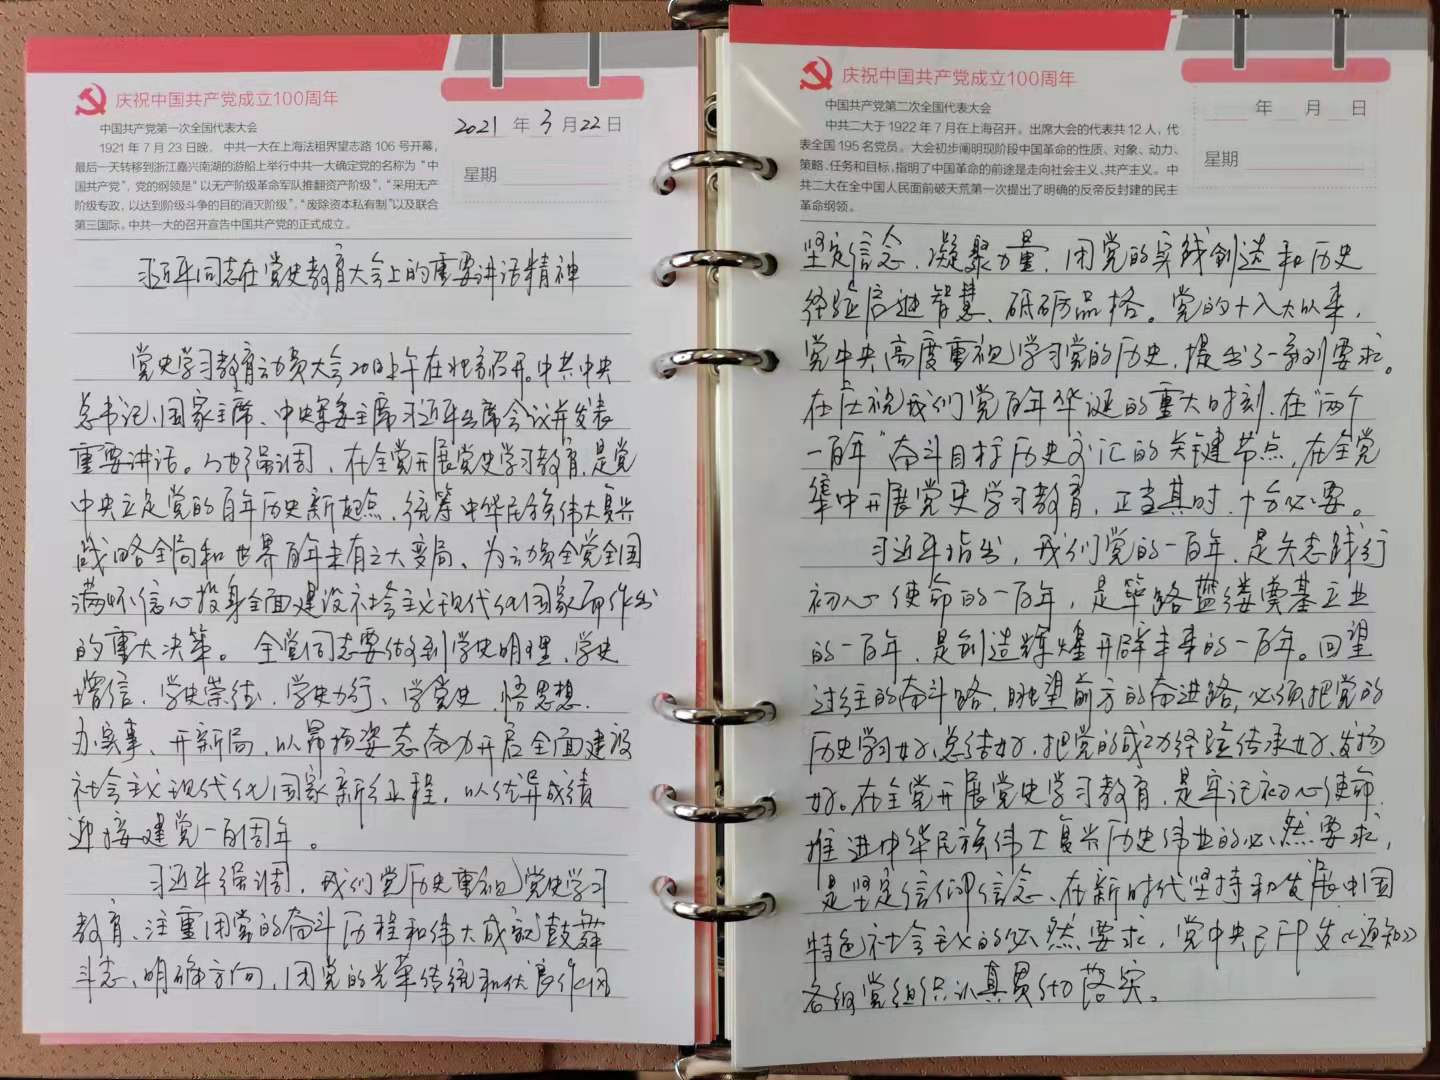 庆祝中国共产党成立100周年
中国共产党第一次全国代表大会
1921 年 7 月 23 日晚，中共一大在上海法租界望志路 106 号开幕，
最后一天转移到浙江嘉兴南湖的游船上举行中共一大确定党的名称为“中
国共产党”，党的纲领是“以无产阶级革命军队推翻资产阶级”，“采用无产
阶级专政，以达到阶级斗争的目的消灭阶级”，“废除资本私有制”以及联合
第三国际。中共一大的召开宣告中国共产党的正式成立。
2021 年 3 月 22 日
星期
习近平同志在党史教育大会上的重要讲话精神
党史学习教育动员大会20日上午在北京召开。中共中央
总书记、国家主席、中央军委主席习近平出席会议并发表
重要讲话。他强调，在全党开展党史学习教育，是党
中央立足党的百年历史新起点、统筹中华民族伟大复兴
战略全局和世界百年未有之大变局、为动员全党全国
满怀信心投身全面建设社会主义现代化国家而作出
的重大决策。全党同志要做到学史明理、学史
增信、学史崇德、学史力行、学党史、悟思想、
办实事、开新局，以昂扬姿态奋力开启全面建设
社会主义现代化国家新征程，以优异成绩
迎接建党一百周年。
习近平强调，我们党历史重视党史学习
教育，注重用党的奋斗历程和伟大成就鼓舞
斗志、明确方向，用党的光荣传统和优良作风
庆祝中国共产党成立100周年
中国共产党第二次全国代表大会
中共二大于 1922 年 7 月在上海召开。出席大会的代表共 12 人，代
表全国 195 名党员。大会初步阐明现阶段中国革命的性质、对象、动力、
策略、任务和目标，指明了中国革命的前途是走向社会主义、共产主义。中
共二大在全中国人民面前破天荒第一次提出了明确的反帝反封建的民主
革命纲领。
年 月 日
星期
坚定信念、凝聚力量，用党的实践创造和历史
经验启迪智慧、砥砺品格。党的十八大以来，
党中央高度重视学习党的历史，提出了一系列要求。
在庆祝我们党百年华诞的重大时刻，在“两个
一百年”奋斗目标历史交汇的关键节点，在全党
集中开展党史学习教育，正当其时，十分必要。
习近平指出，我们党的一百年，是矢志践行
初心使命的一百年，是筚路蓝缕奠基立业
的一百年，是创造辉煌开辟未来的一百年。回望
过往的奋斗路，眺望前方的奋进路，必须把党的
历史学习好、总结好，把党的成功经验传承好、发扬
好。在全党开展党史学习教育，是牢记初心使命、
推进中华民族伟大复兴历史伟业的必然要求，
是坚定信仰信念、在新时代坚持和发展中国
特色社会主义的必然要求，党中央已印发《通知》
各级党组织认真贯彻落实。